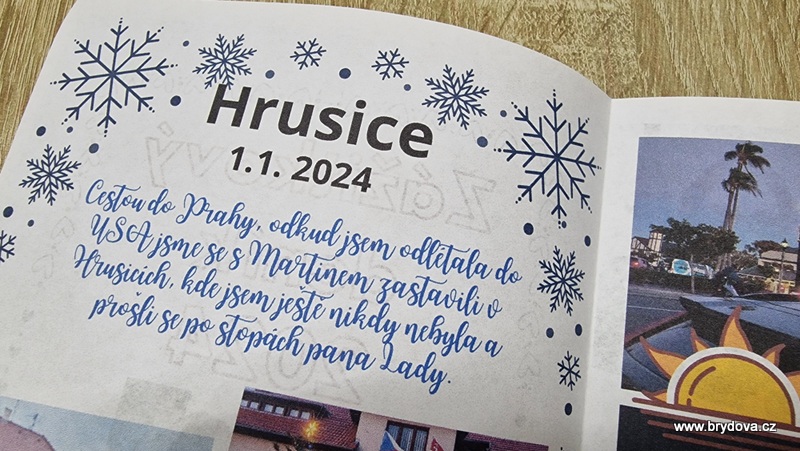 Hrusice
1.1. 2024
Cestou do Prahy, odkud jsem odlétala do
USA jsme se s Martinem zastavili v
Hrusicích, kde jsem ještě nikdy nebyla a
prošli se po stopách pana Lady.
www.brydova.cz